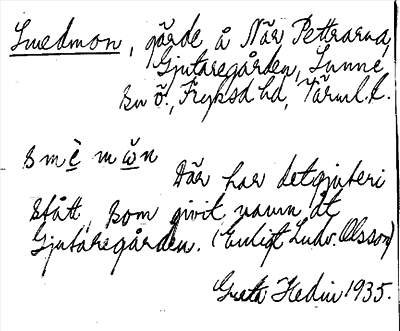 Smedmon, gärde å När Pettrarna,
Gjutaregården, Sunne
sn ö., Fryksd hd, Värml. l.
s m è m ŏ n
Där har det gjuteri
stått, som givit namn åt
Gjutaregården. (Enligt Ludv. Olsson)
Greta Hedin 1935.